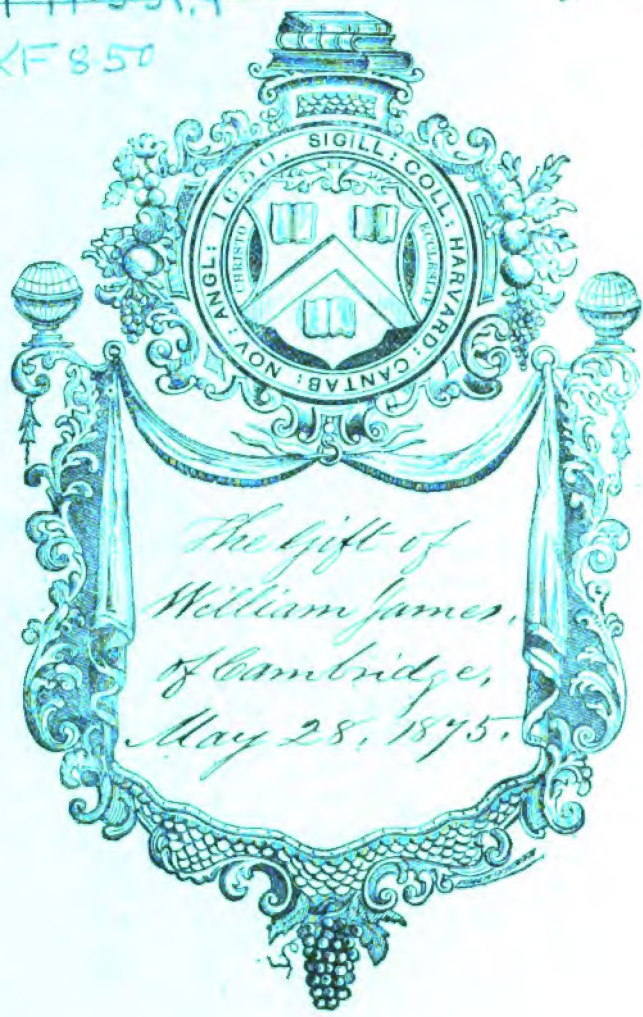 KF 850
SIGILL: COLL: HARVARD: CANTAB: NOV: ANGL: 1650.
CHRISTO
ET
ECCLESIÆ
The Gift of
William James,
of Cambridge,
May 28, 1875.